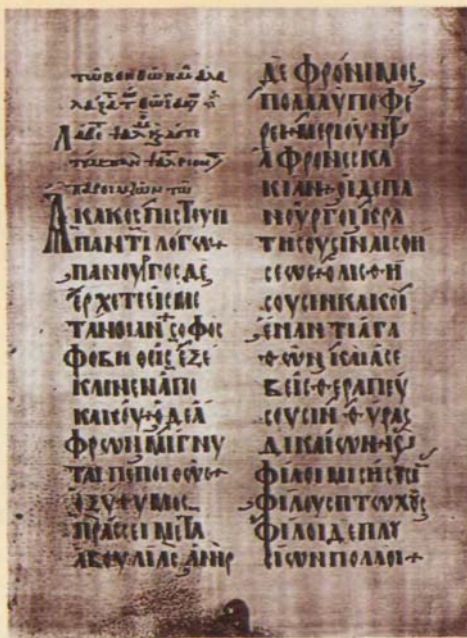 παροιμιῶν
ἄκακος πιστεύει
παντὶ λόγω+
πανοῦργος δὲ
ἔρχετε εἰς με
τάνοιαν+ σοφὸς
φοβηθεὶς ἐξέ
κλινεν ἀπὸ
κακοῦ+ ὁ δὲ ἄ
φρων μίγνυ
ται πεποιθώς+
ὀξύθυμος
πράσσει μετὰ
ἀβουλίας, ἀνὴρ
δὲ φρόνιμος
πολλὰ ὑποφέ
ρει+ μεριοῦνται
ἄφρονες κα
κίαν+ οἱ δὲ πα
νοῦργοι κρα
τήσουσιν αἰσθή
σεως+ ὀλισθή
σουσιν κακοὶ
ἔναντι ἀγα
θῶν+ καὶ ἀσε
βεῖς θεραπεύ
σουσιν θύρας
δικαίων+
φίλοι μισήσουσιν
φίλους πτωχοὺς
φίλοι δὲ πλου
σίων πολλοί+